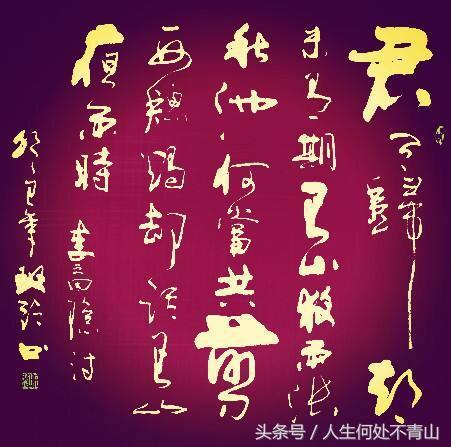 君问歸期
未有期巴山夜雨涨
秋池何當共剪
西窗燭却話巴山
夜雨時
李商隐诗
头条号 / 人生何处不青山